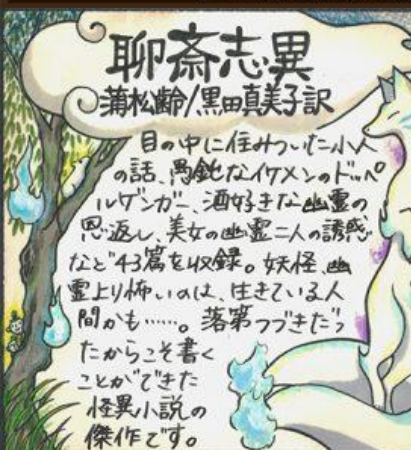 聊斎志異
蒲松齢/黒田真美子訳
目の中に住みついた小人
の話、愚鈍なイケメンのドッペ
ルゲンガー、酒好きな幽霊の
恩返し、美女の幽霊二人の誘惑
など43篇を収録。妖怪、幽
霊より怖いのは、生きている人
間かも……。落第つづきだっ
たからこそ書く
ことができた
怪異小説の
傑作です。